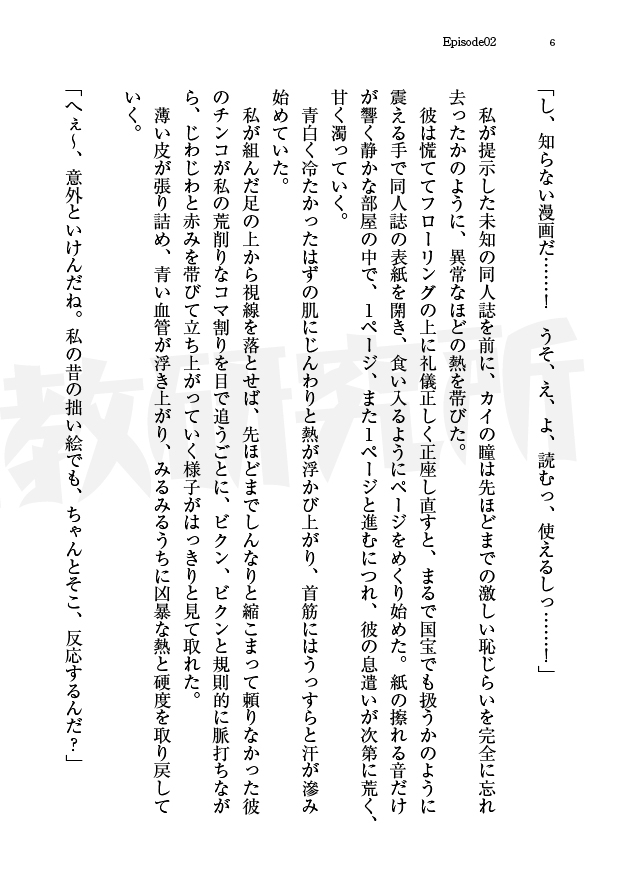 Episode02
6
「し、知らない漫画だ……！　うそ、え、よ、読むっ、使えるしっ……！」
　私が提示した未知の同人誌を前に、カイの瞳は先ほどまでの激しい恥じらいを完全に忘れ
去ったかのように、異常なほどの熱を帯びた。
　彼は慌ててフローリングの上に礼儀正しく正座し直すと、まるで国宝でも扱うかのように
震える手で同人誌の表紙を開き、食い入るようにページをめくり始めた。紙の擦れる音だけ
が響く静かな部屋の中で、1ページ、また1ページと進むにつれ、彼の息遣いが次第に荒く、
甘く濁っていく。
　青白く冷たかったはずの肌にじんわりと熱が浮かび上がり、首筋にはうっすらと汗が滲み
始めていた。
　私が組んだ足の上から視線を落とせば、先ほどまでしんなりと縮こまって頼りなかった彼
のチンコが私の荒削りなコマ割りを目で追うごとに、ビクン、ビクンと規則的に脈打ちなが
ら、じわじわと赤みを帯びて立ち上がっていく様子がはっきりと見て取れた。
　薄い皮が張り詰め、青い血管が浮き上がり、みるみるうちに凶暴な熱と硬度を取り戻して
いく。
「へぇ～、意外といけんだね。私の昔の拙い絵でも、ちゃんとそこ、反応するんだ？」
教研究所